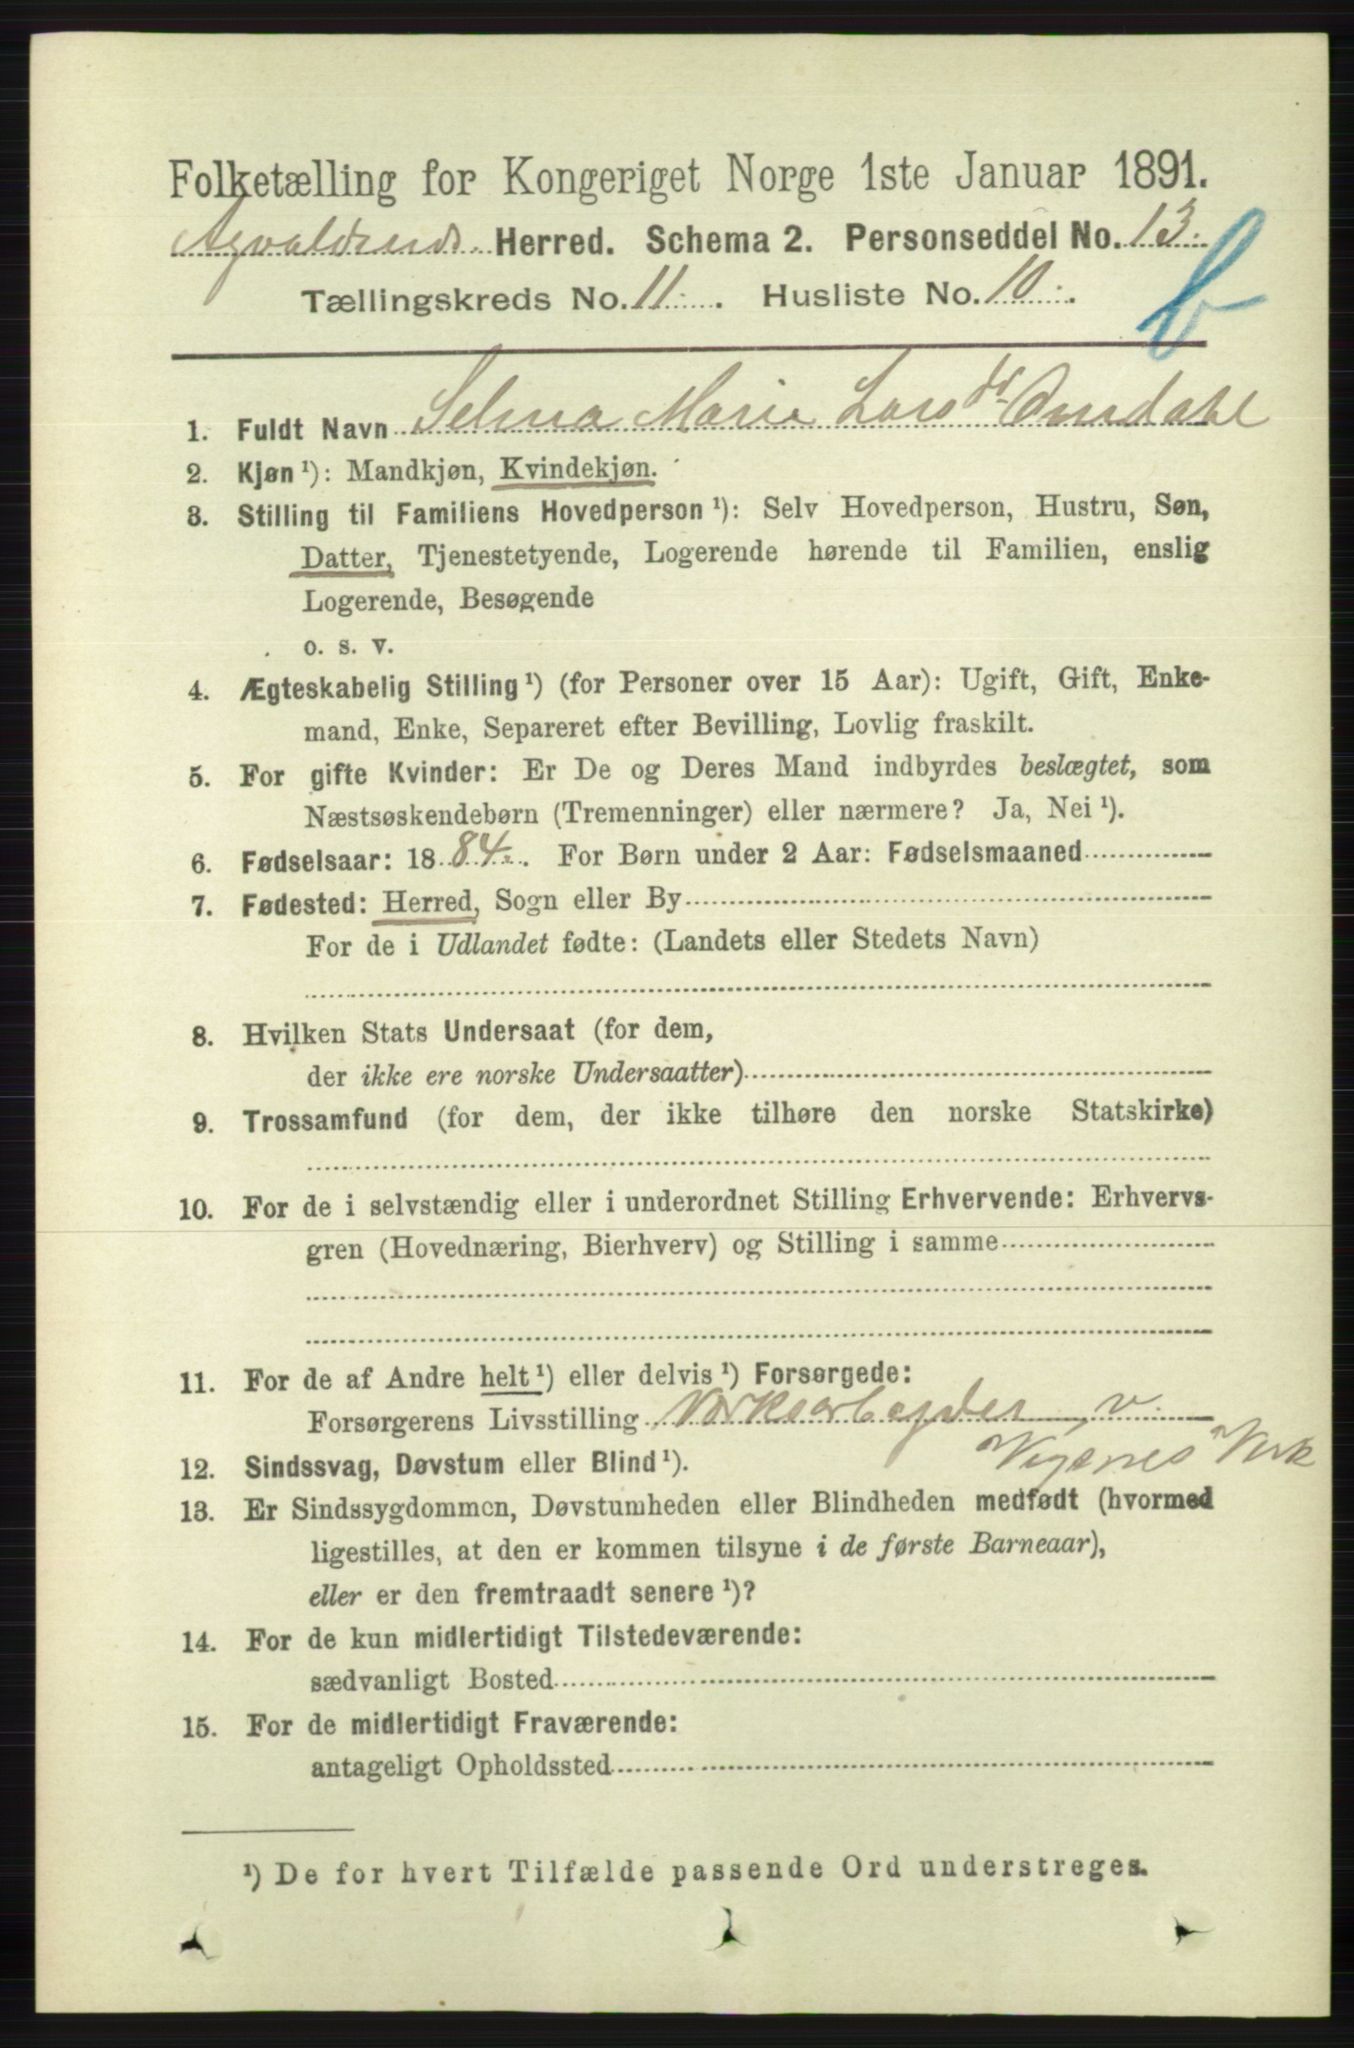 Folketælling for Kongeriget Norge 1ste Januar 1891.
Herred. Schema 2. Personseddel No. 13.
Tællingskreds No. 11. Husliste No. 10.
b
1. Fuldt Navn Selma Marie Larsdr. Omdahl
2. Kjøn ¹): Mandkjøn, Kvindekjøn.
3. Stilling til Familiens Hovedperson ¹): Selv Hovedperson, Hustru, Søn,
Datter, Tjenestetyende, Logerende hørende til Familien, enslig
Logerende, Besøgende
o. s. v.
4. Ægteskabelig Stilling ¹) (for Personer over 15 Aar): Ugift, Gift, Enke-
mand, Enke, Separeret efter Bevilling, Lovlig fraskilt.
5. For gifte Kvinder: Er De og Deres Mand indbyrdes beslægtet, som
Næstsøskendebørn (Tremenninger) eller nærmere? Ja, Nei ¹).
6. Fødselsaar: 1884. For Børn under 2 Aar: Fødselsmaaned
7. Fødested: Herred, Sogn eller By
For de i Udlandet fødte: (Landets eller Stedets Navn)
8. Hvilken Stats Undersaat (for dem,
der ikke ere norske Undersaatter)
9. Trossamfund (for dem, der ikke tilhøre den norske Statskirke)
10. For de i selvstændig eller i underordnet Stilling Erhvervende: Erhvervs-
gren (Hovednæring, Bierhverv) og Stilling i samme
11. For de af Andre helt ¹) eller delvis ¹) Forsørgede:
Forsørgerens Livsstilling Verksarbejder v.
Vigsnes Verk
12. Sindssvag, Døvstum eller Blind ¹).
13. Er Sindssygdommen, Døvstumheden eller Blindheden medfødt (hvormed
ligestilles, at den er kommen tilsyne i de første Barneaar),
eller er den fremtraadt senere ¹)?
14. For de kun midlertidigt Tilstedeværende:
sædvanligt Bosted
15. For de midlertidigt Fraværende:
antageligt Opholdssted
¹) De for hvert Tilfælde passende Ord understreges.